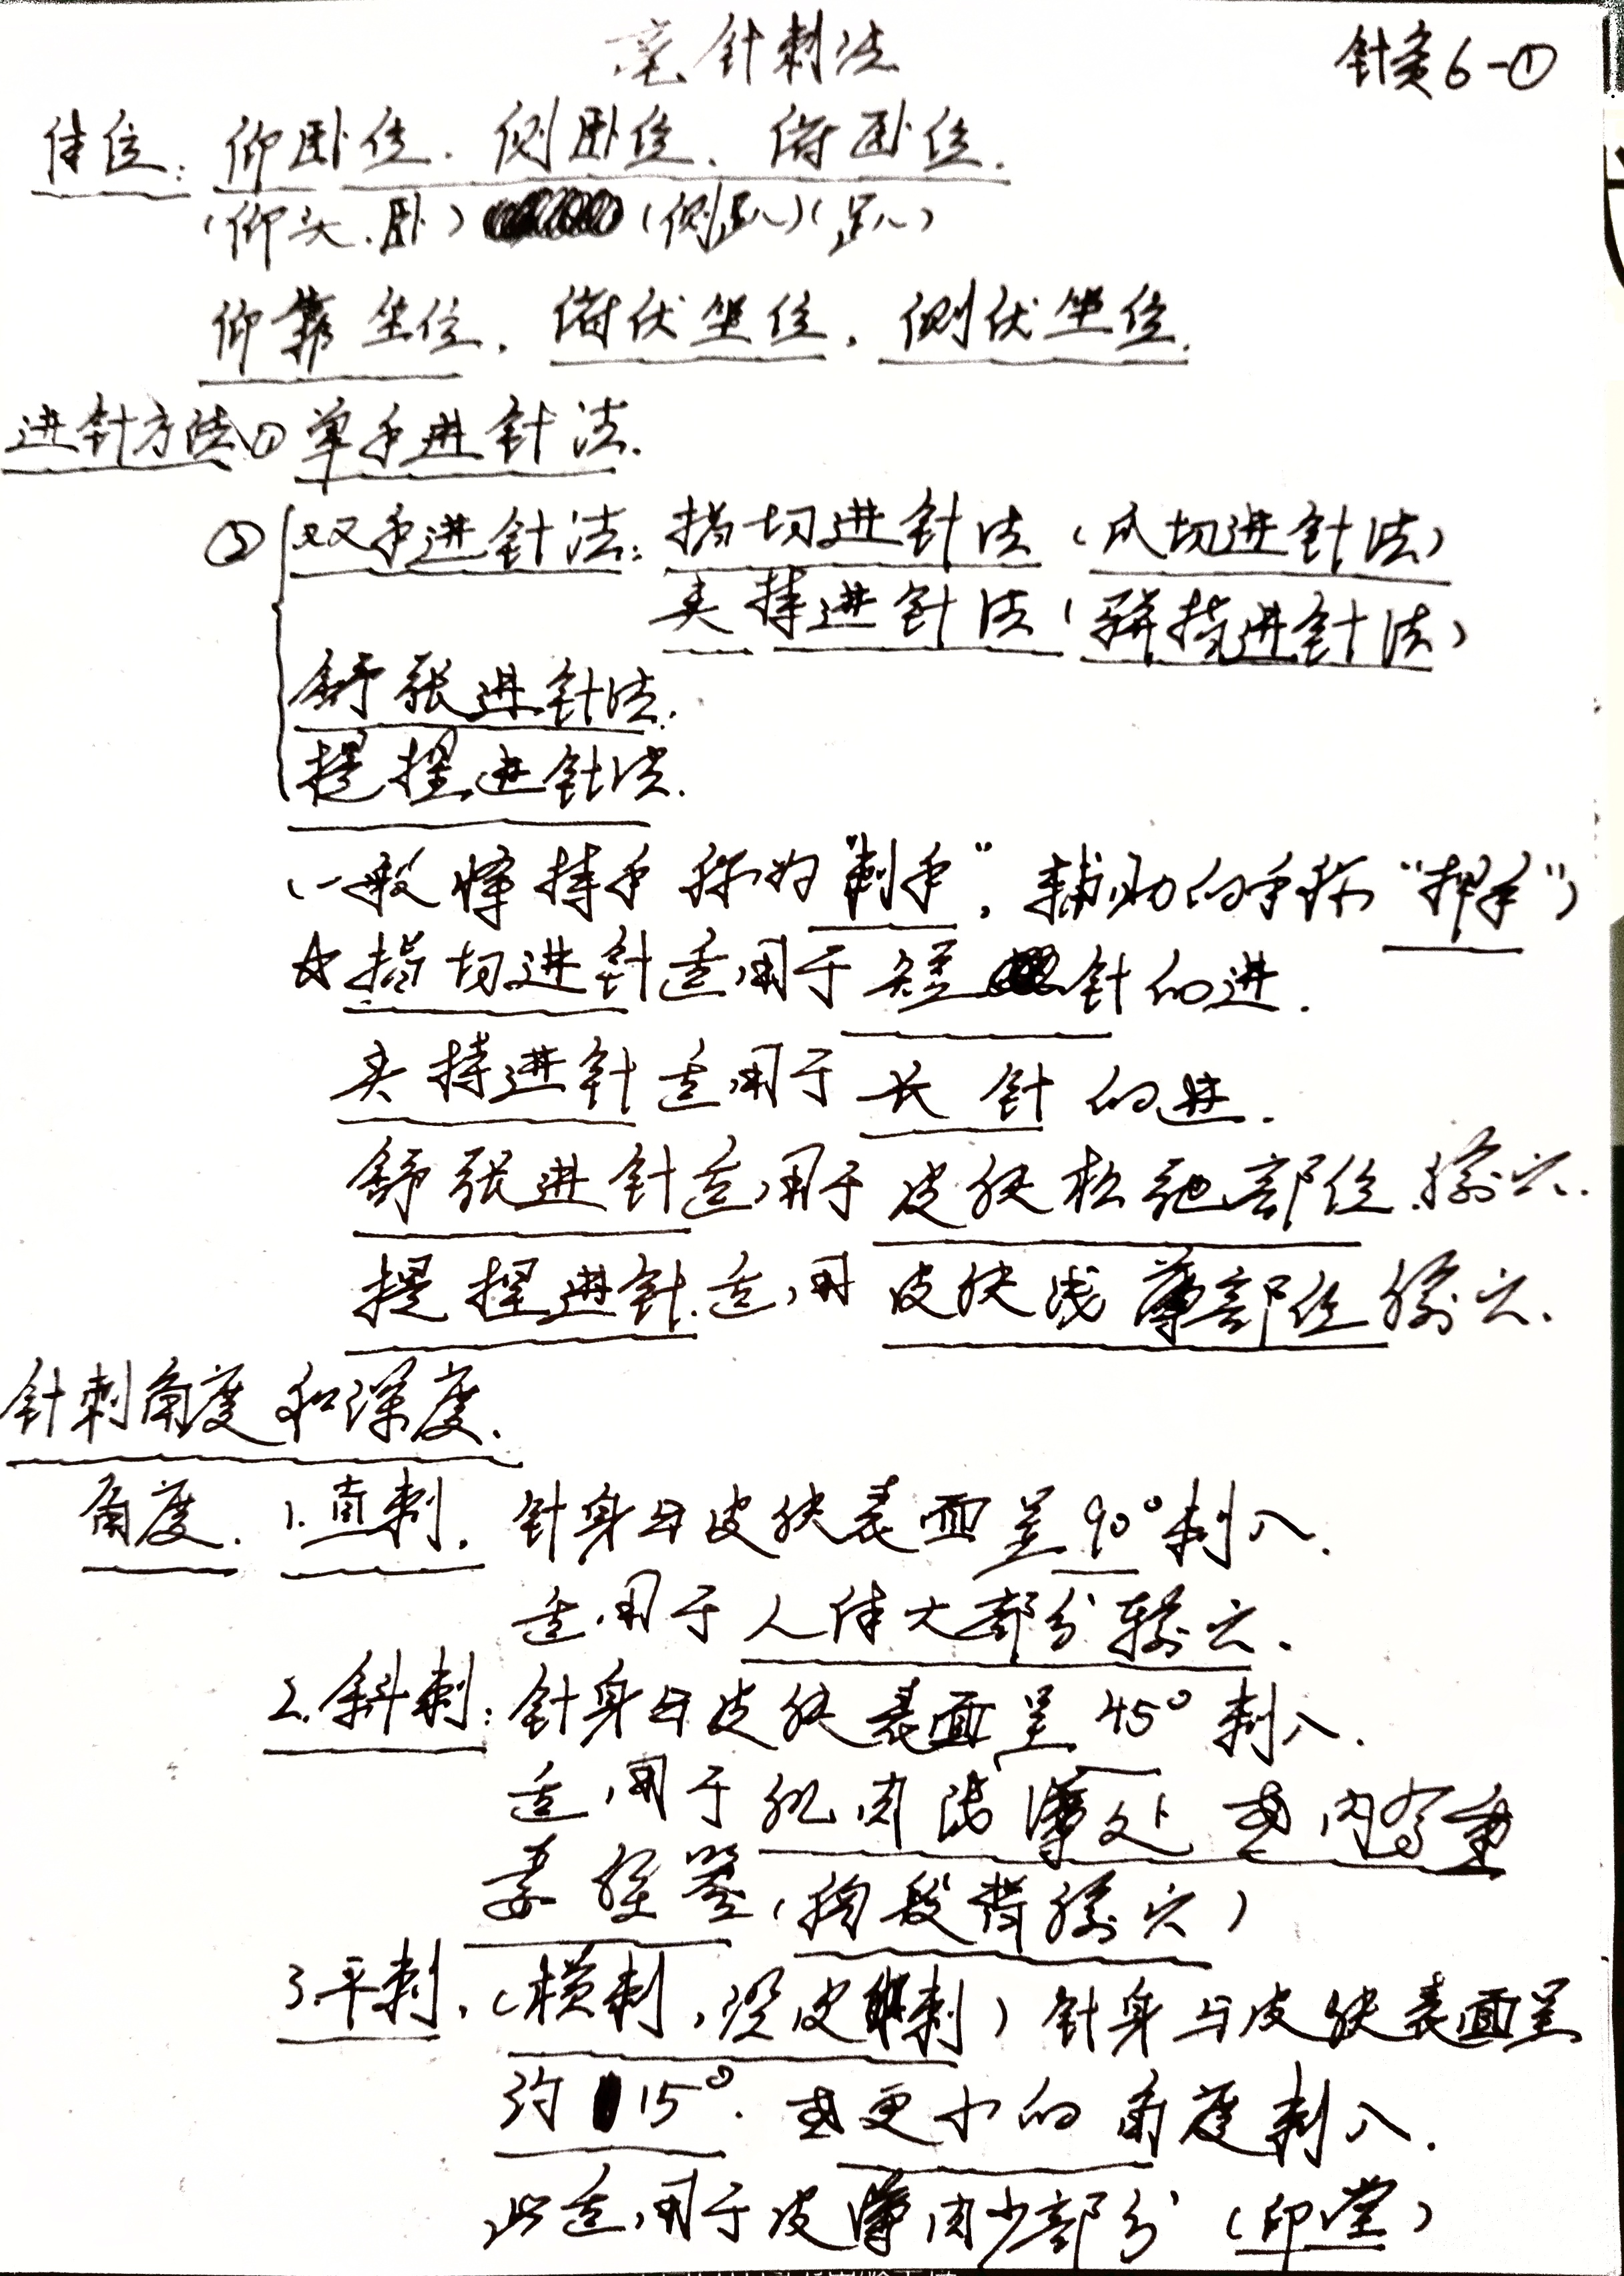 毫针刺法
针灸6-①
体位:仰卧位.侧卧位、俯卧位.
(仰头.卧)(侧趴)(趴)
仰靠坐位,俯伏坐位,侧伏坐位.
进针方法①单手进针法.
②双手进针法:指切进针法(爪切进针法)
夹持进针法(骈指进针法)
舒张进针法.
提捏进针法.
(一般将持手称为"刺手",辅助的手称"押手")
☆指切进针适用于短针的进.
夹持进针适用于长针的进.
舒张进针适用于皮肤松弛部位.腧穴.
提捏进针.适用皮肤浅薄部位腧穴.
针刺角度和深度.
角度.1.直刺.针身与皮肤表面呈90°刺入.
适用于人体大部分腧穴.
2.斜刺:针身与皮肤表面呈45°刺入.
适用于肌肉浅薄处或内有重
要脏器(胸段背腧穴)
3.平刺.(横刺,沿皮刺)针身与皮肤表面呈
约15°.或更小的角度刺入.
此适用于皮薄肉少部分(印堂)